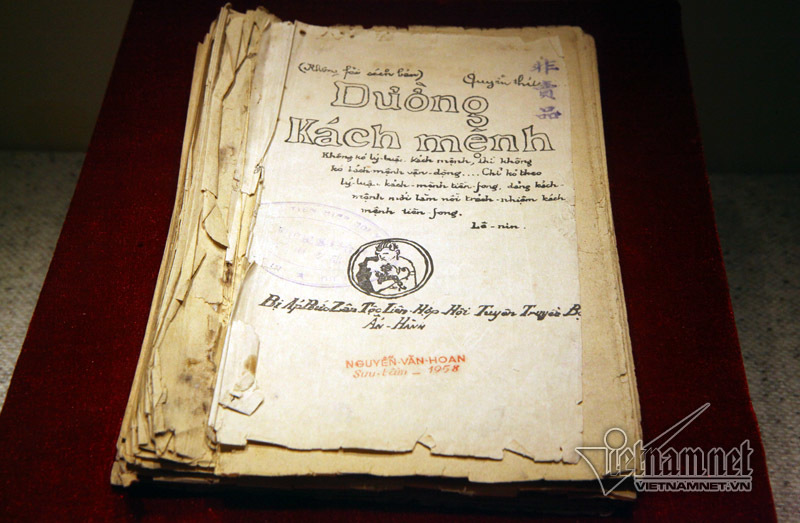 (Không fải sách bán) Quyển thứ
非賣品
Đường
Kách mệnh
Không kó lý-luận kách mệnh, thì không
kó kách mệnh vận-động.... Chỉ kó theo
lý-luận kách-mệnh tiền-fong, đảng kách-
mệnh mới làm nổi trách-nhiệm kách
mệnh tiền-fong.
Lê-nin.
Bị Áp Bức Zân Tộc Liên-Hợp-Hội Tuyên Truyền Bộ
Ấn-Hành
NGUYỄN-VĂN-HOAN
Sưu-tầm - 1958
Vietnamnet
VIETNAMNET.VN